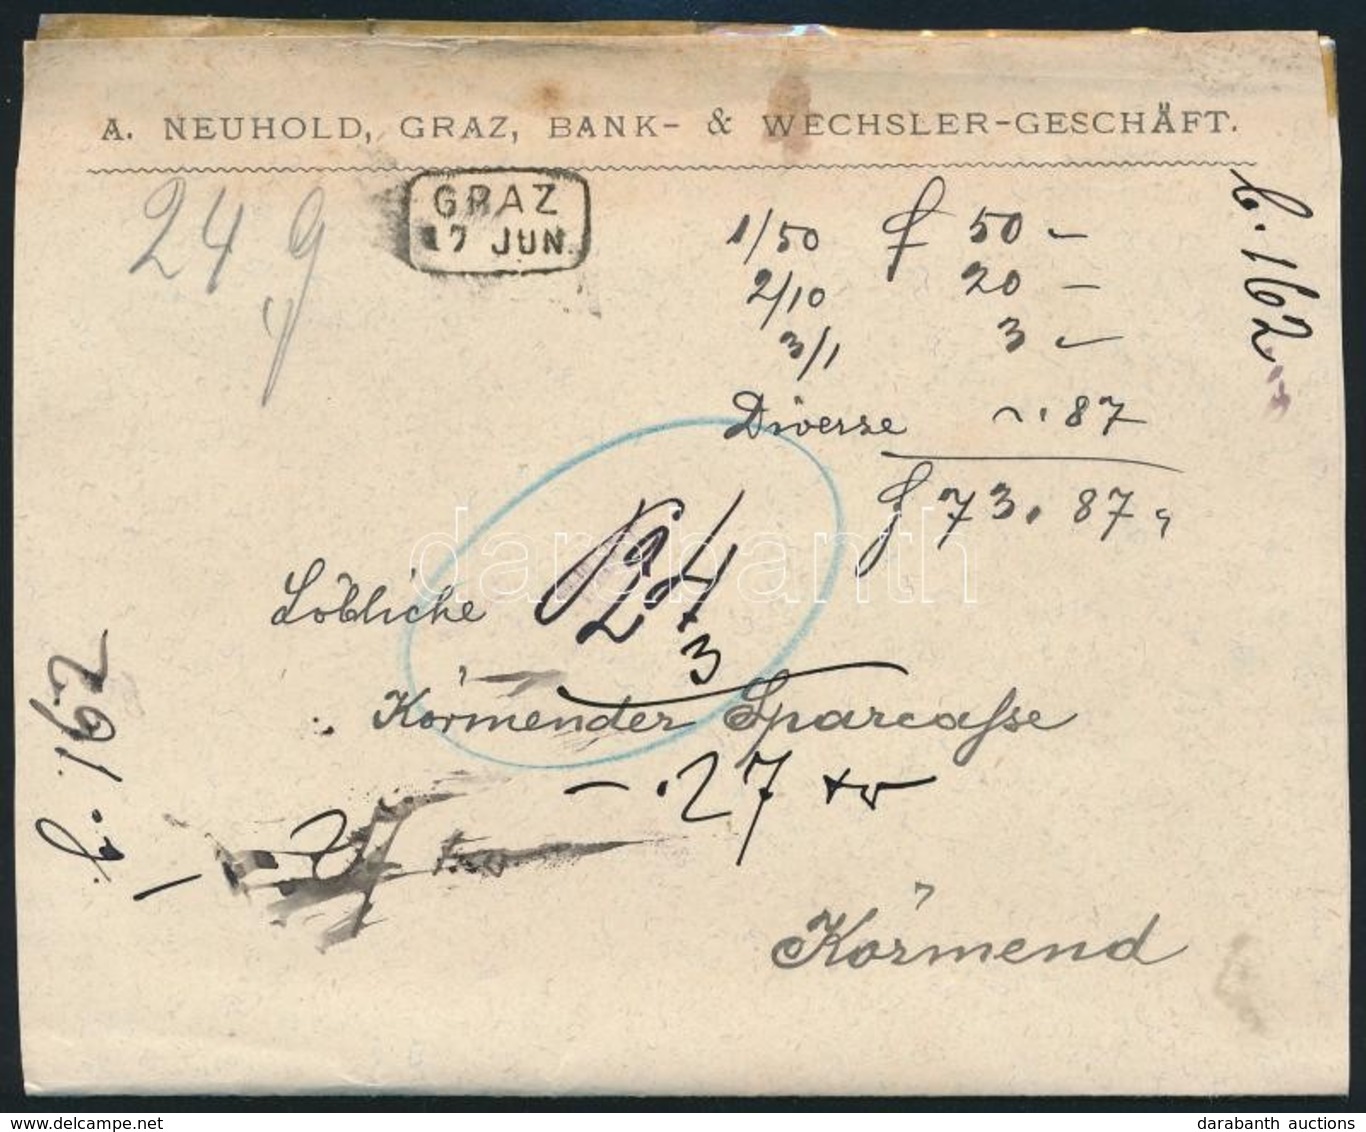 A. NEUHOLD, GRAZ, BANK- & WECHSLER-GESCHÄFT.
24 g
GRAZ
17 JUN.
1/50 f 50 –
2/10 20 –
3/1 3 –
Diverse ~. 87
f 73. 87
b. 162
Löbliche
24
3
Körmender Sparcasse
– . 27 xr
b. 162
Körmend
darabanth
www.delcampe.net
darabanth auctions